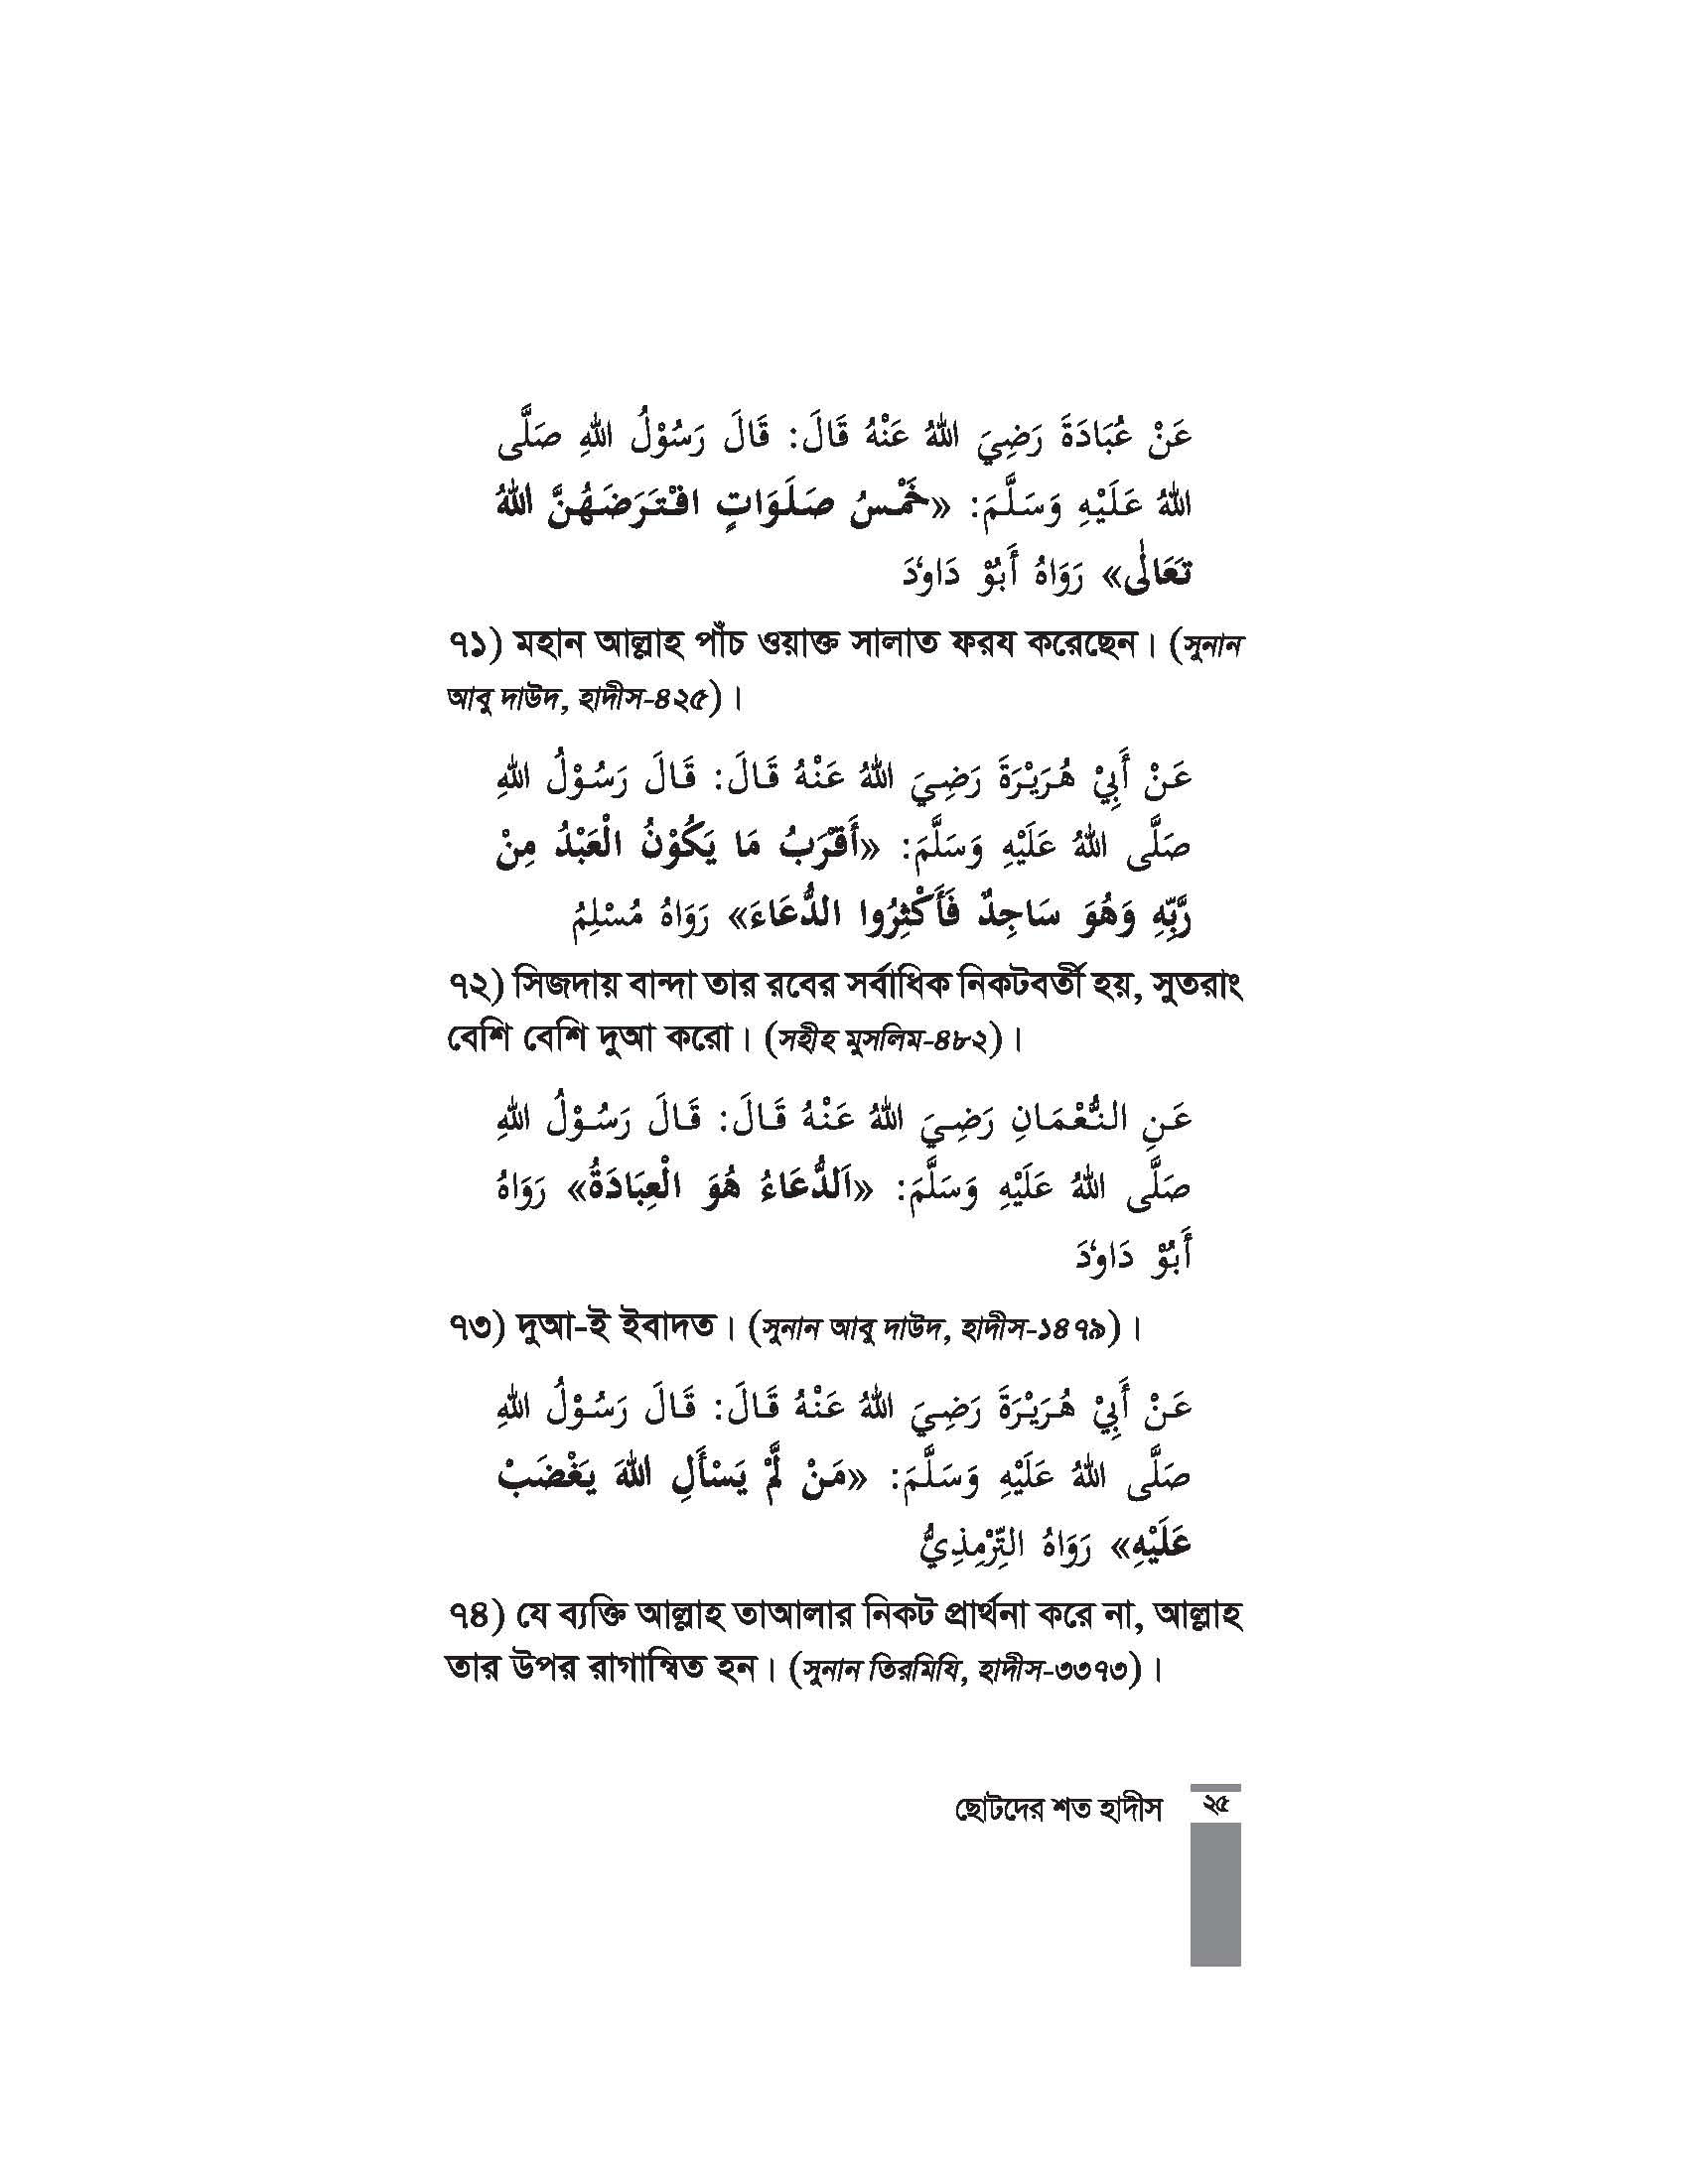 عَنْ عُبَادَةَ رَضِيَ اللهُ عَنْهُ قَالَ: قَالَ رَسُوْلُ اللهِ صَلَّى
اللهُ عَلَيْهِ وَسَلَّمَ: «خَمْسُ صَلَوَاتٍ افْتَرَضَهُنَّ اللهُ
تَعَالٰى» رَوَاهُ أَبُوْ دَاوٗدَ
৭১) মহান আল্লাহ পাঁচ ওয়াক্ত সালাত ফরয করেছেন। (সুনান
আবু দাউদ, হাদীস-৪২৫)।
عَنْ أَبِيْ هُرَيْرَةَ رَضِيَ اللهُ عَنْهُ قَالَ: قَالَ رَسُوْلُ اللهِ
صَلَّى اللهُ عَلَيْهِ وَسَلَّمَ: «أَقْرَبُ مَا يَكُوْنُ الْعَبْدُ مِنْ
رَّبِّهِ وَهُوَ سَاجِدٌ فَأَكْثِرُوا الدُّعَاءَ» رَوَاهُ مُسْلِمُ
৭২) সিজদায় বান্দা তার রবের সর্বাধিক নিকটবর্তী হয়, সুতরাং
বেশি বেশি দুআ করো। (সহীহ মুসলিম-৪৮২)।
عَنِ النُّعْمَانِ رَضِيَ اللهُ عَنْهُ قَالَ: قَالَ رَسُوْلُ اللهِ
صَلَّى اللهُ عَلَيْهِ وَسَلَّمَ: «اَلدُّعَاءُ هُوَ الْعِبَادَةُ» رَوَاهُ
أَبُوْ دَاوٗدَ
৭৩) দুআ-ই ইবাদত। (সুনান আবু দাউদ, হাদীস-১৪৭৯)।
عَنْ أَبِيْ هُرَيْرَةَ رَضِيَ اللهُ عَنْهُ قَالَ: قَالَ رَسُوْلُ اللهِ
صَلَّى اللهُ عَلَيْهِ وَسَلَّمَ: «مَنْ لَّمْ يَسْأَلِ اللهَ يَغْضَبْ
عَلَيْهِ» رَوَاهُ التِّرْمِذِيُّ
৭৪) যে ব্যক্তি আল্লাহ তাআলার নিকট প্রার্থনা করে না, আল্লাহ
তার উপর রাগান্বিত হন। (সুনান তিরমিযি, হাদীস-৩৩৭৩)।
ছোটদের শত হাদীস ২৫